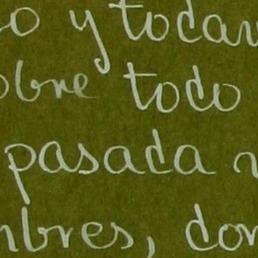 o y todav
obre todo
pasada
mbres, don